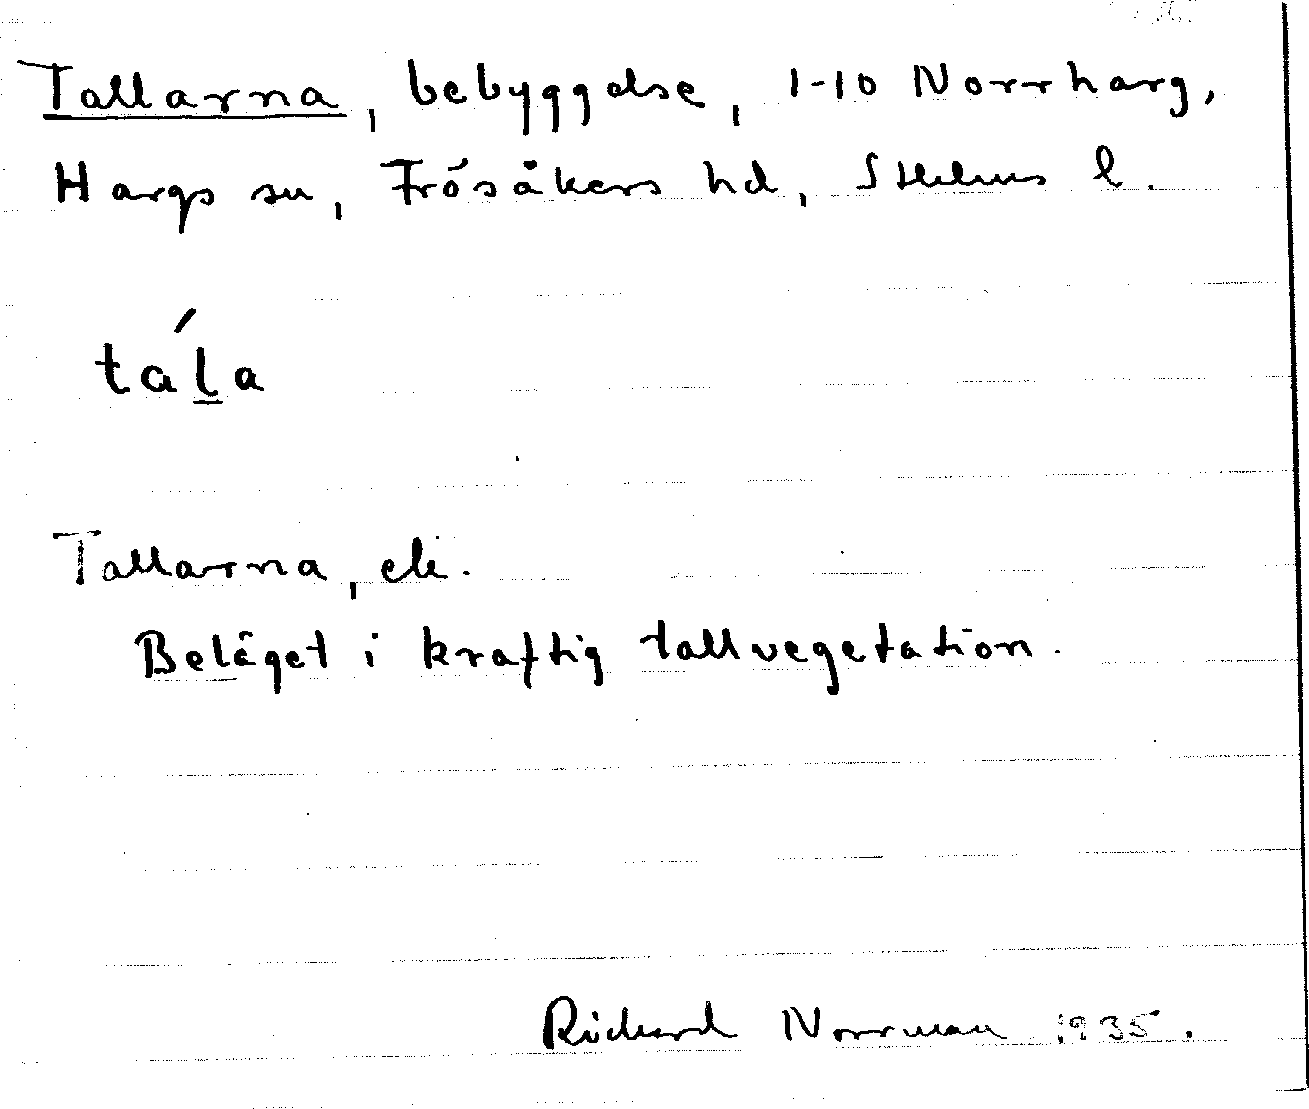 Tallarna, bebyggelse, 1-10 Norrharg,
Hargs sn, Frösåkers hd, Sthlms l.
tál̲a
Tallarna, ek.
Beläget i kraftig tallvegetation.
Richard Norrman 1935.